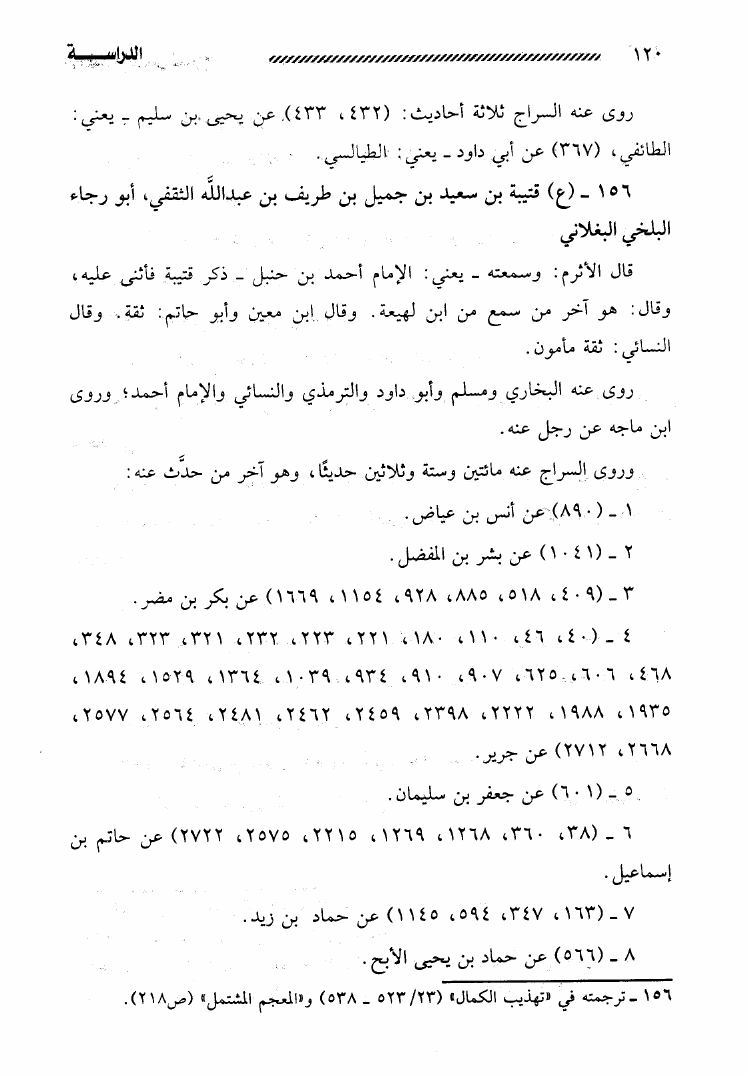 ١٢٠ الدراسـة
روى عنه السراج ثلاثة أحاديث: (٤٣٢، ٤٣٣) عن يحيى بن سليم - يعني:
الطائفي، (٣٦٧) عن أبي داود - يعني: الطيالسي.
١٥٦ - (ع) قتيبة بن سعيد بن جميل بن طريف بن عبداللَّه الثقفي، أبو رجاء
البلخي البغلاني
قال الأثرم: وسمعته - يعني: الإمام أحمد بن حنبل - ذكر قتيبة فأثنى عليه،
وقال: هو آخر من سمع من ابن لهيعة. وقال ابن معين وأبو حاتم: ثقة. وقال
النسائي: ثقة مأمون.
روى عنه البخاري ومسلم وأبو داود والترمذي والنسائي والإمام أحمد؛ وروى
ابن ماجه عن رجل عنه.
وروى السراج عنه مائتين وستة وثلاثين حديثًا، وهو آخر من حدَّث عنه:
١ - (٨٩٠) عن أنس بن عياض.
٢ - (١٠٤١) عن بشر بن المفضل.
٣ - (٤٠٩، ٥١٨، ٨٨٥، ٩٢٨، ١١٥٤، ١٦٦٩) عن بكر بن مضر.
٤ - (٤٠، ٤٦، ١١٠، ١٨٠، ٢٢١، ٢٢٣، ٢٣٢، ٣٢١، ٣٢٣، ٣٤٨،
٤٦٨، ٦٠٦، ٦٢٥، ٩٠٧، ٩١٠، ٩٣٤، ١٠٣٩، ١٣٦٤، ١٥٢٩، ١٨٩٤،
١٩٣٥، ١٩٨٨، ٢٢٢٢، ٢٣٩٨، ٢٤٥٩، ٢٤٦٢، ٢٤٨١، ٢٥٦٤، ٢٥٧٧،
٢٦٦٨، ٢٧١٢) عن جرير.
٥ - (٦٠١) عن جعفر بن سليمان.
٦ - (٣٨، ٣٦٠، ١٢٦٨، ١٢٦٩، ٢٢١٥، ٢٥٧٥، ٢٧٢٢) عن حاتم بن
إسماعيل.
٧ - (١٦٣، ٣٤٧، ٥٩٤، ١١٤٥) عن حماد بن زيد.
٨ - (٥٦٦) عن حماد بن يحيى الأبح.
١٥٦ - ترجمته في «تهذيب الكمال» (٢٣/ ٥٢٣ - ٥٣٨) و«المعجم المشتمل» (ص٢١٨).